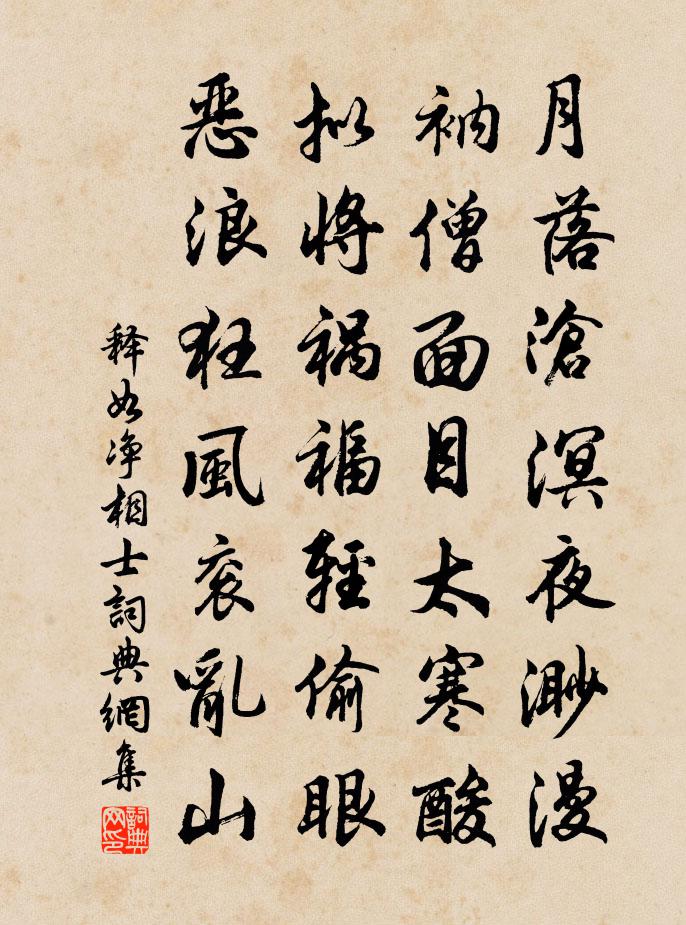 月落滄溟夜渺漫
衲僧面目太寒酸
拟將禍福輕偷眼
惡浪狂風衮亂山
释如净相士詞典網集
詞典网印